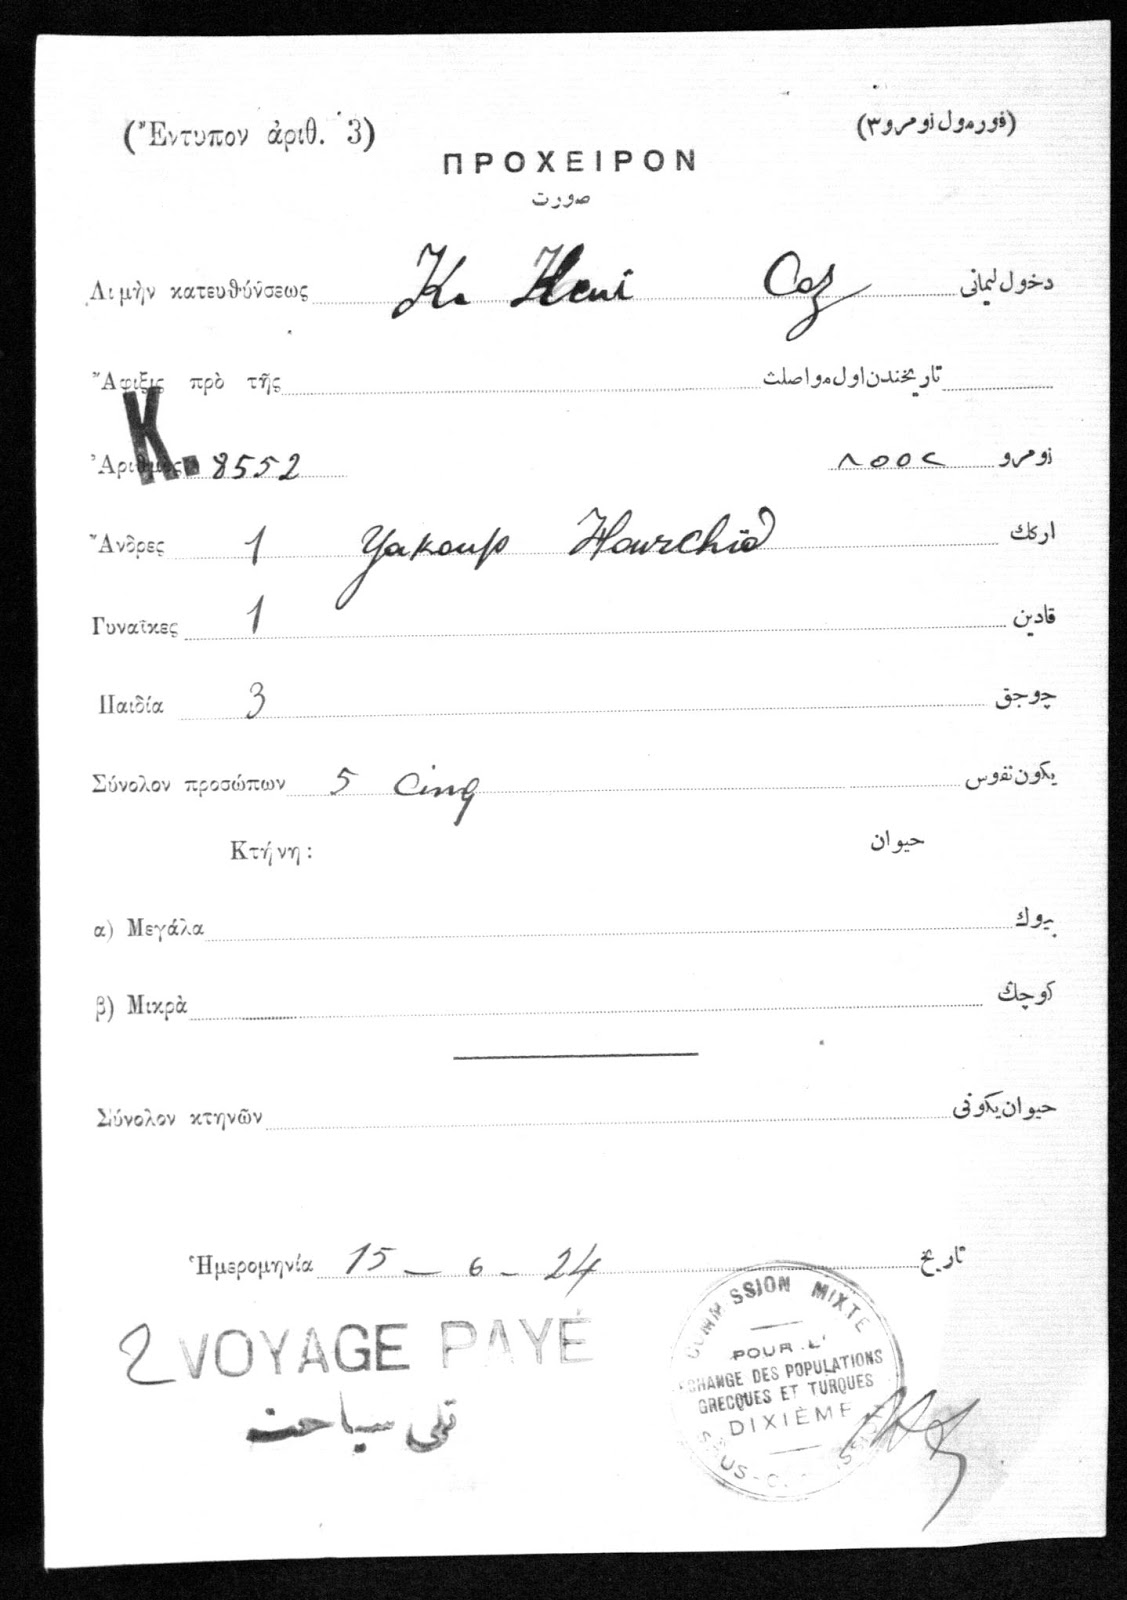 (Ἔντυπον ἀριθ. 3) (فورمول نومرو ٣)
ΠΡΟΧΕΙΡΟΝ
صورت
Λιμὴν κατευθύνσεως دخول ليمانى
Ἄφιξις πρὸ τῆς تاريخندن اول مواصلت
K.
Ἀριθμὸς 8552 ٨٥٥٢ نومرو
Ἄνδρες 1 Yakoup Hourchid اركك
Γυναῖκες 1 قادين
Παιδία 3 چوجق
Σύνολον προσώπων 5 cinq يكون نفوس
Κτήνη: حيوان
α) Μεγάλα بيوك
β) Μικρὰ كوچك
Σύνολον κτηνῶν حيوان يكونى
Ἡμερομηνία 15 - 6 - 24 تاريخ
2 VOYAGE PAYÉ
سياحت
COMMISSION MIXTE
POUR L'
ÉCHANGE DES POPULATIONS
GRECQUES ET TURQUES
DIXIÈME
SOUS-COMMISSION